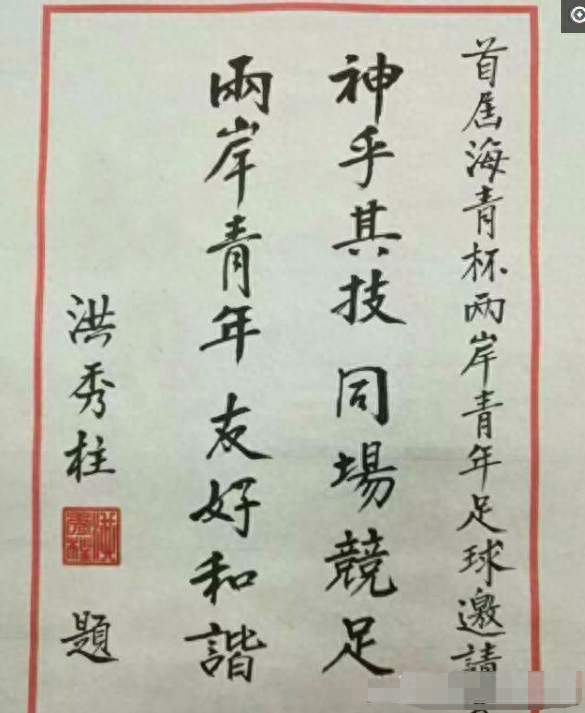 首屆海青杯兩岸青年足球邀請
神乎其技 同場競足
兩岸青年 友好和諧
洪秀柱 題